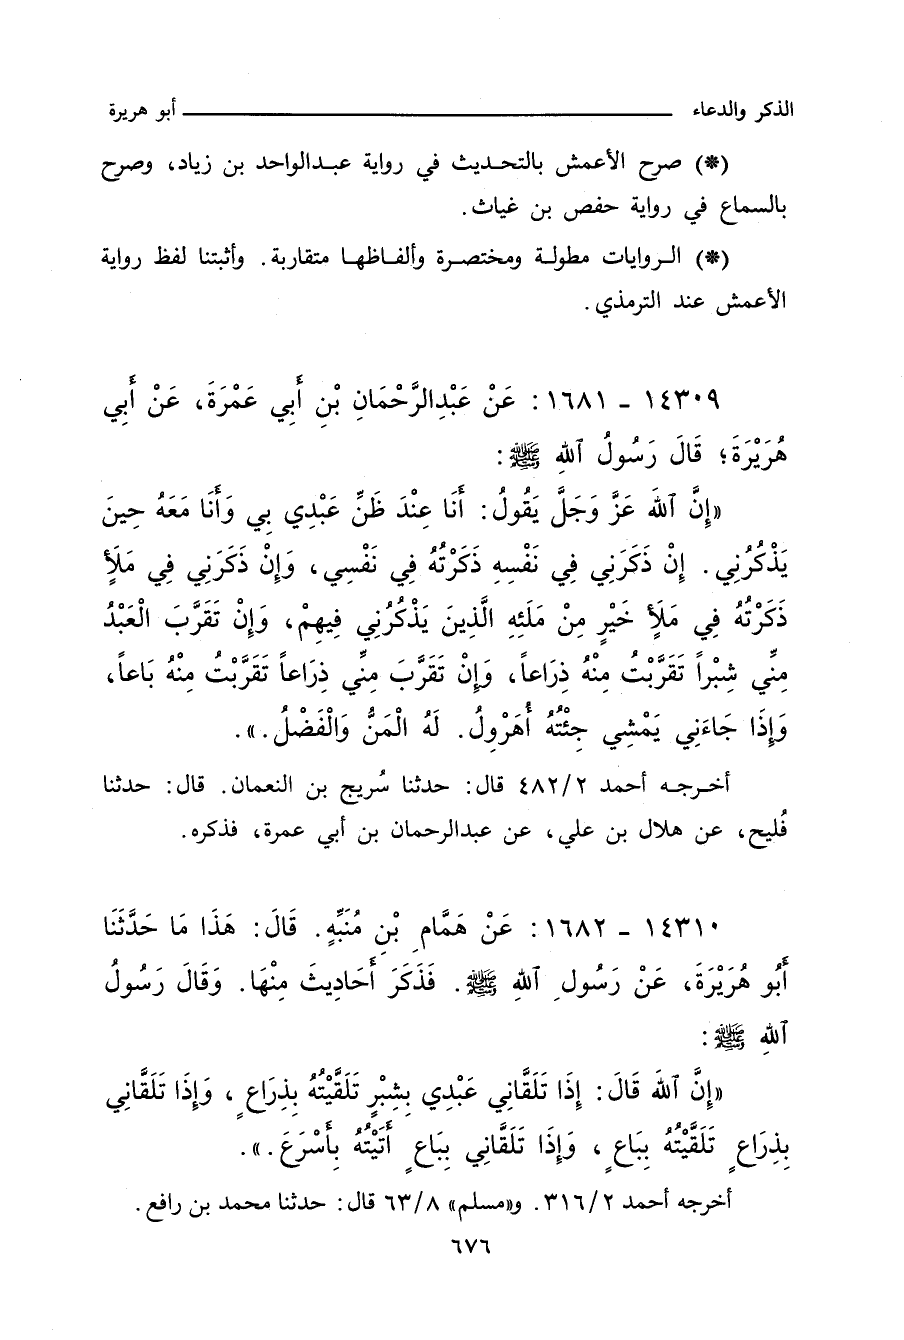 الذكر والدعاء ــــــــــــــــــــــــــــــــــــــــ أبو هريرة
(*) صرح الأعمش بالتحـديث في رواية عبـدالواحد بن زياد، وصرح
بالسماع في رواية حفص بن غياث.
(*) الـروايات مطولـة ومختصـرة وألفـاظهـا متقاربة. وأثبتنا لفظ رواية
الأعمش عند الترمذي.
١٤٣٠٩ ـ ١٦٨١: عَنْ عَبْدِالرَّحْمَانِ بْنِ أَبِي عَمْرَةَ، عَنْ أَبِي
هُرَيْرَةَ؛ قَالَ رَسُولُ ٱللهِ ﷺ:
«إِنَّ ٱللهَ عَزَّ وَجَلَّ يَقُولُ: أَنَا عِنْدَ ظَنِّ عَبْدِي بِي وَأَنَا مَعَهُ حِينَ
يَذْكُرُنِي. إِنْ ذَكَرَنِي فِي نَفْسِهِ ذَكَرْتُهُ فِي نَفْسِي، وَإِنْ ذَكَرَنِي فِي مَلَأٍ
ذَكَرْتُهُ فِي مَلَأٍ خَيْرٍ مِنْ مَلَئِهِ الَّذِينَ يَذْكُرُنِي فِيهِمْ، وَإِنْ تَقَرَّبَ الْعَبْدُ
مِنِّي شِبْراً تَقَرَّبْتُ مِنْهُ ذِرَاعاً، وَإِنْ تَقَرَّبَ مِنِّي ذِرَاعاً تَقَرَّبْتُ مِنْهُ بَاعاً،
وَإِذَا جَاءَنِي يَمْشِي جِئْتُهُ أُهَرْوِلُ. لَهُ الْمَنُّ وَالْفَضْلُ.».
أخـرجـه أحمد ٤٨٢/٢ قال: حدثنا سُريج بن النعمان. قال: حدثنا
فُليح، عن هلال بن علي، عن عبدالرحمان بن أبي عمرة، فذكره.
١٤٣١٠ ـ ١٦٨٢: عَنْ هَمَّامِ بْنِ مُنَبِّهٍ. قَالَ: هَذَا مَا حَدَّثَنَا
أَبُو هُرَيْرَةَ، عَنْ رَسُولِ ٱللهِ ﷺ. فَذَكَرَ أَحَادِيثَ مِنْهَا. وَقَالَ رَسُولُ
ٱللهِ ﷺ:
«إِنَّ ٱللهَ قَالَ: إِذَا تَلَقَّانِي عَبْدِي بِشِبْرٍ تَلَقَّيْتُهُ بِذِرَاعٍ، وَإِذَا تَلَقَّانِي
بِذِرَاعٍ تَلَقَّيْتُهُ بِبَاعٍ، وَإِذَا تَلَقَّانِي بِبَاعٍ أَتَيْتُهُ بِأَسْرَعَ.».
أخرجه أحمد ٣١٦/٢. و«مسلم» ٦٣/٨ قال: حدثنا محمد بن رافع.
٦٧٦